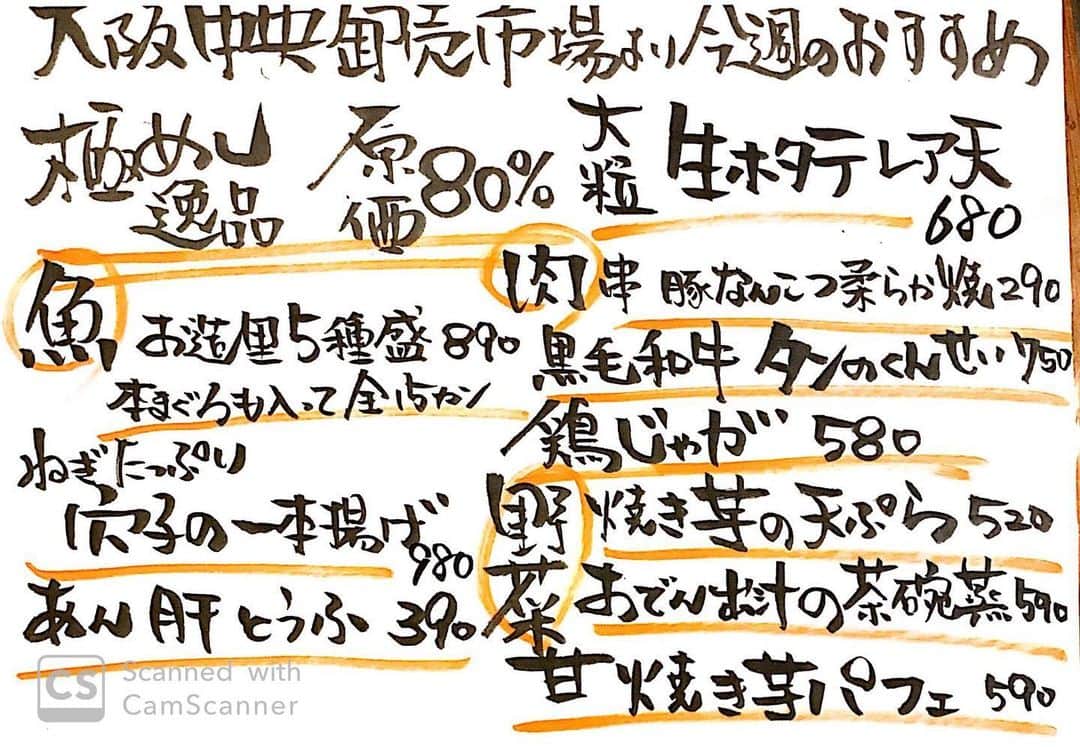 大阪中央卸売市場より今週のおすすめ
極めし逸品 原価80%
大粒 生ホタテレア天 680
魚
お造里5種盛 890
本まぐろも入って全15カン
ねぎたっぷり
穴子の一本揚げ 980
あん肝とうふ 390
肉
串 豚なんこつ柔らか焼 290
黒毛和牛 タンのくんせい 750
鶏じゃが 580
野菜
焼き芋の天ぷら 520
おでん出汁の茶碗蒸 590
甘 焼き芋パフェ 590
CS Scanned with
CamScanner